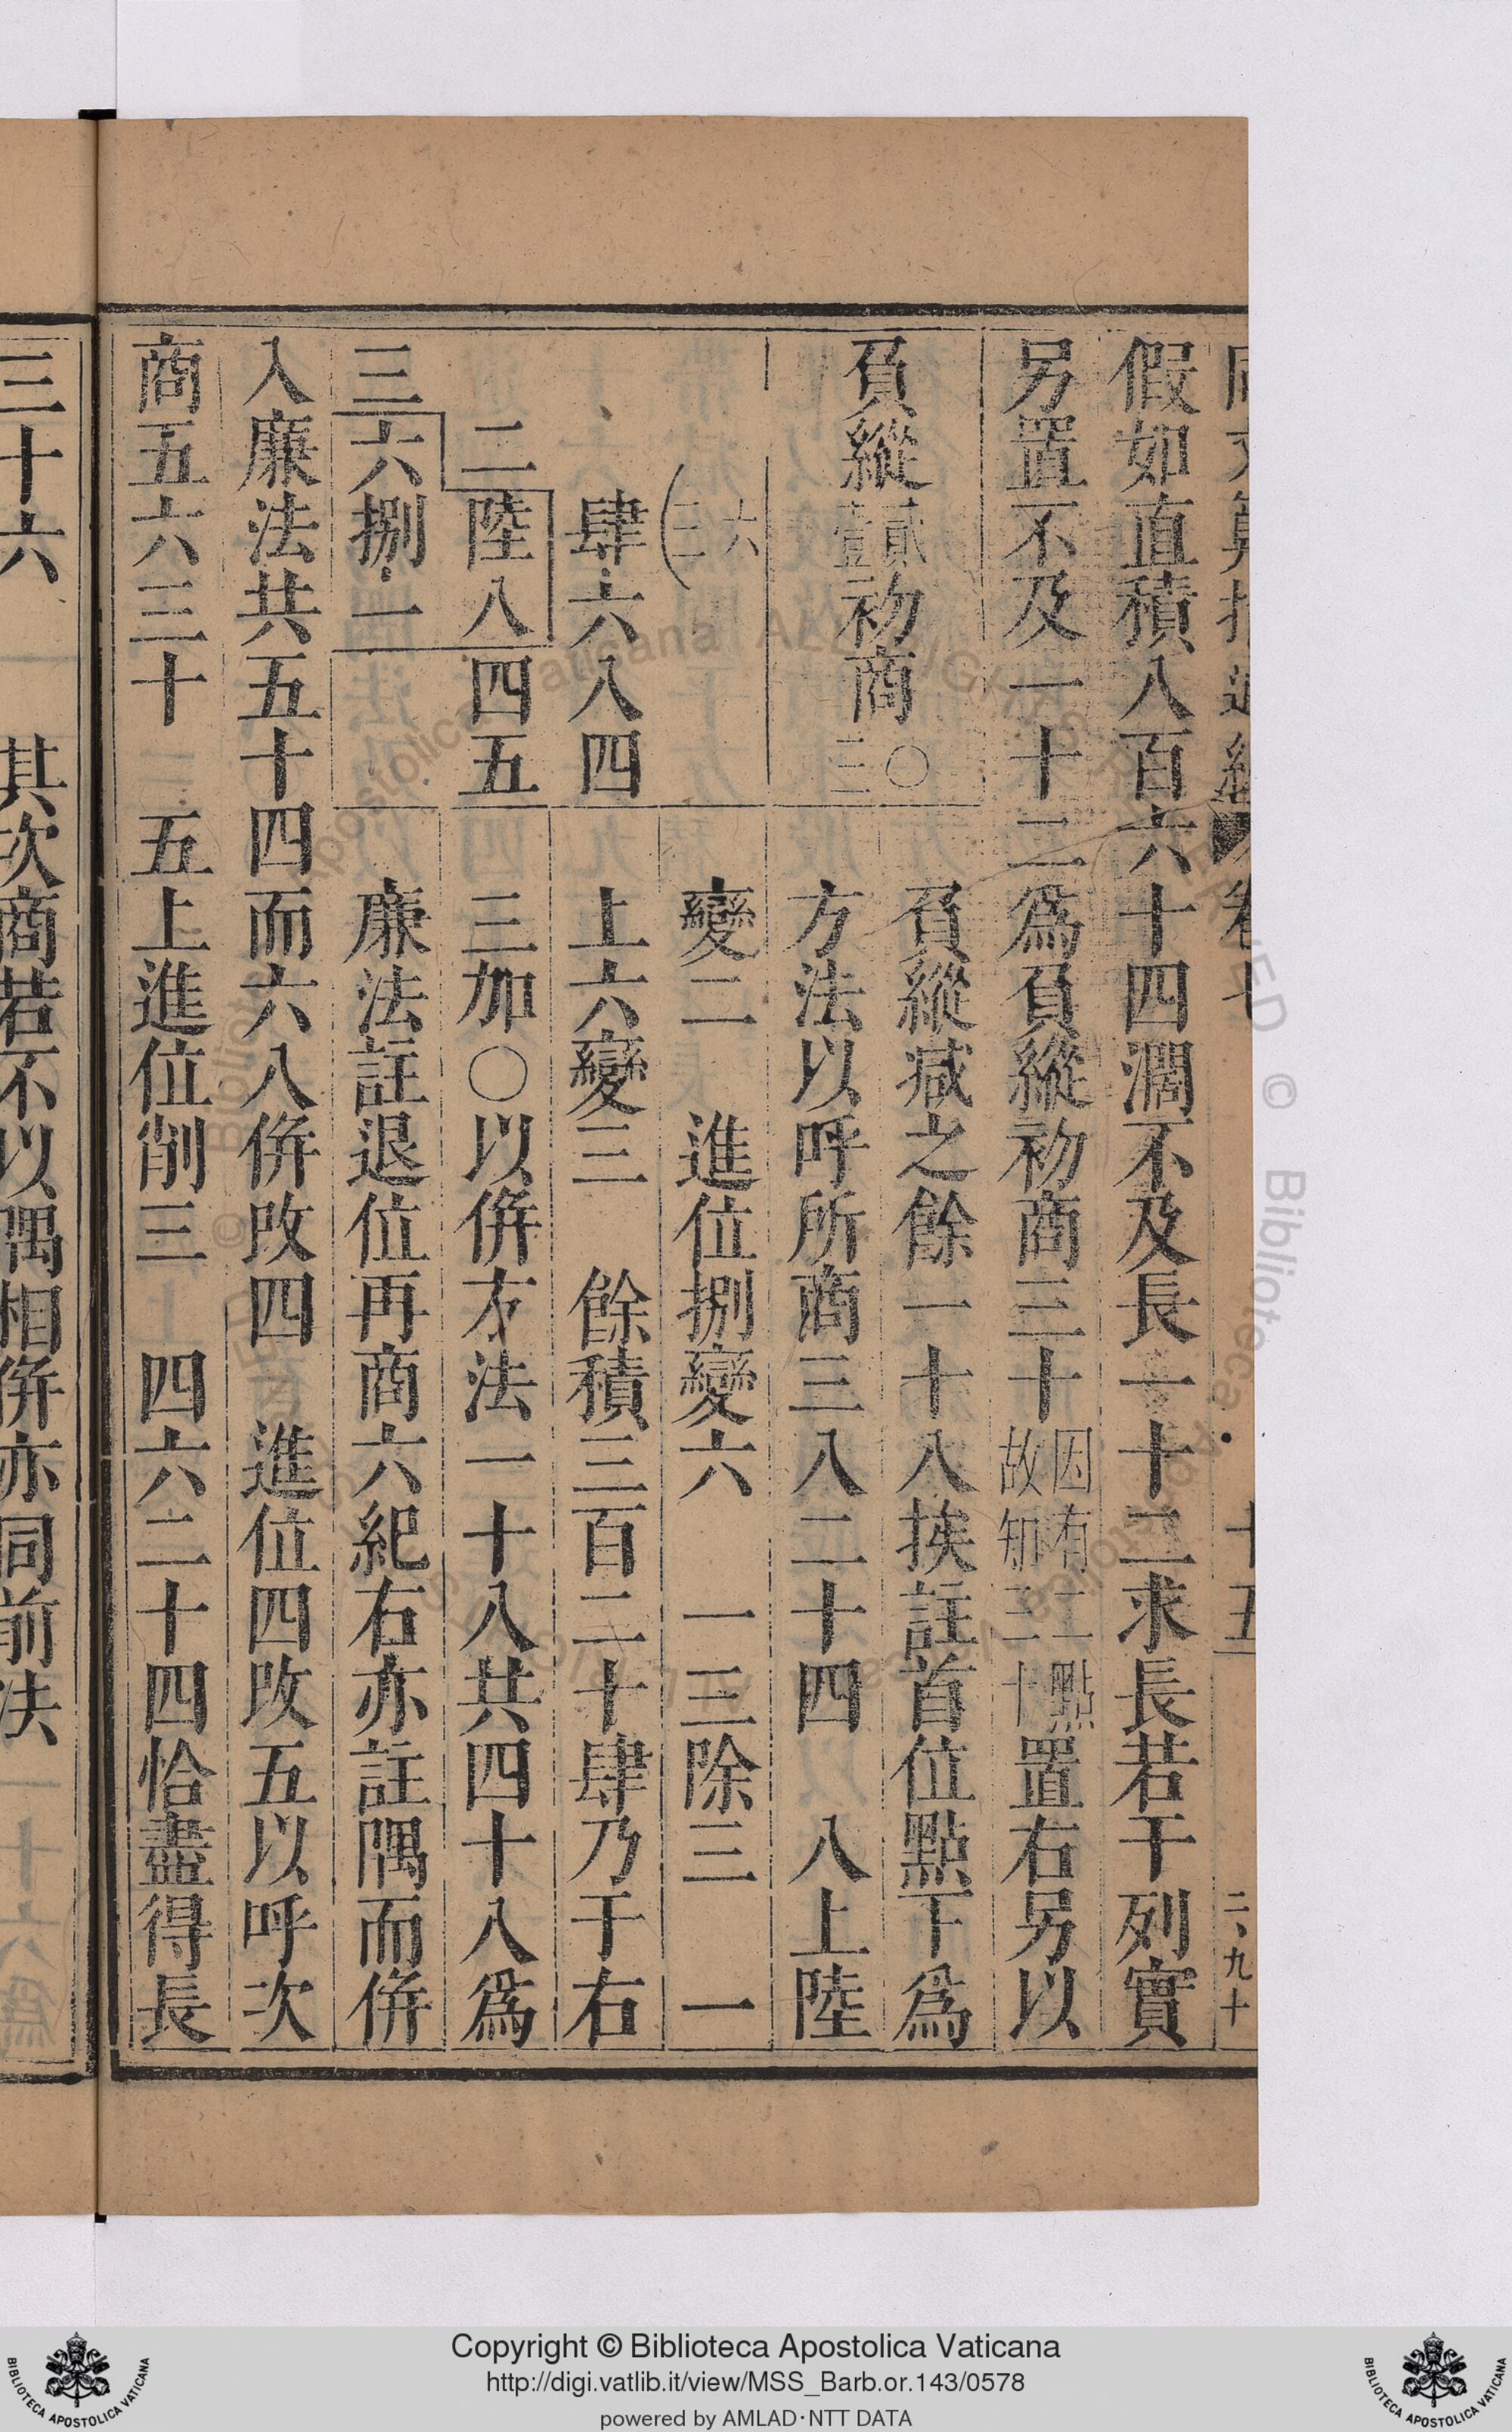 假如直積八百六十四濶不及長一十二求長若干列實
另置不及一十二為負縱初商三十因有二點故知三十置右另以
負縱貳壹初商〇三
負縱减之餘一十八挨註首位點下為
方法以呼所商三八二十四 八上陸
六三
變二 進位捌變六 一三除三 一
肆六八四
上六變三 餘積三百二十肆乃于右
二陸八四五
三加〇以併方法一十八共四十八為
三六捌一
廉法註退位再商六紀右亦註隅而併
入廉法共五十四而六八併改四 進位四改五以呼次
商五六三十 五上進位削三 四六二十四恰盡得長
三十六 其次商若不以隅相併亦同前法
十五
二、九十
Copyright © Biblioteca Apostolica Vaticana
http://digi.vatlib.it/view/MSS_Barb.or.143/0578
powered by AMLAD·NTT DATA
BIBLIOTECA APOSTOLICA VATICANA
BIBLIOTECA APOSTOLICA VATICANA